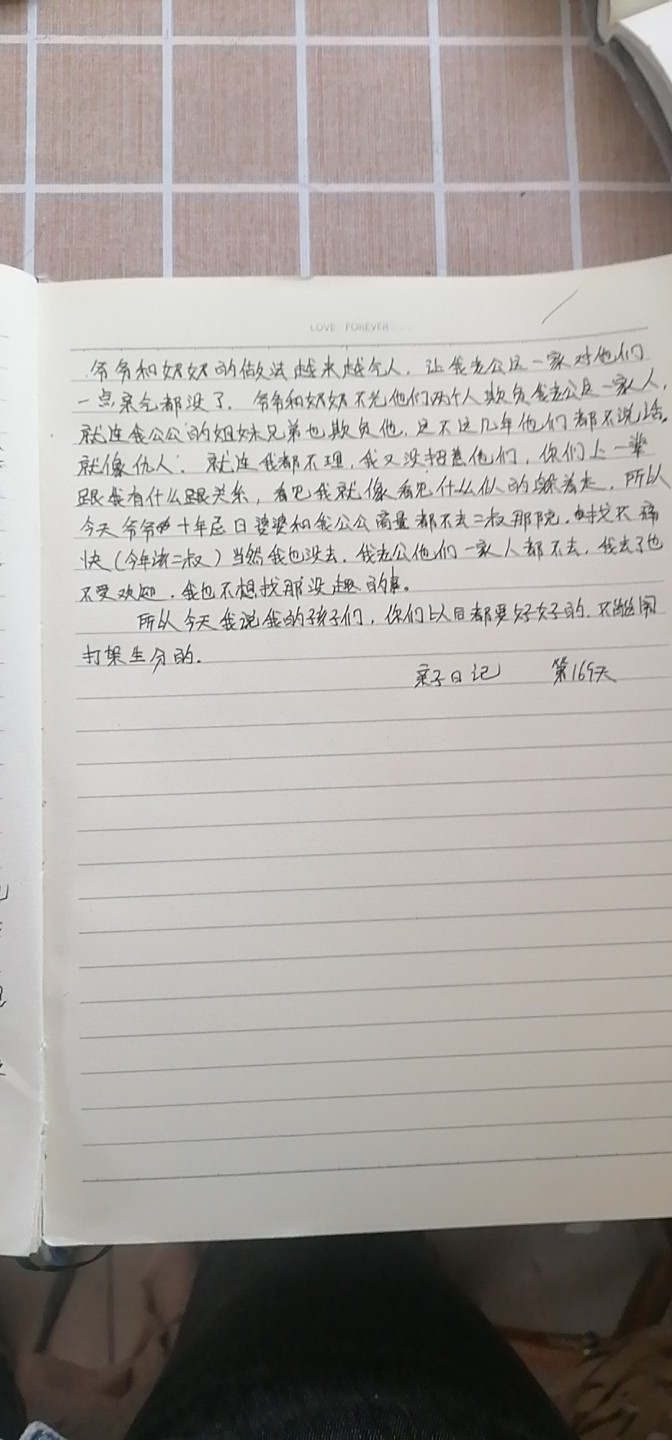 LOVE FOREVER
爷爷和奶奶的做法越来越气人，让我老公这一家对他们
一点亲气都没了。爷爷和奶奶不光他们两个人欺负我老公这一家人，
就连我公公的姐妹兄弟也欺负他，这不这几年他们都不说话。
就像仇人。就连我都不理，我又没招惹他们，你们上一辈
跟我有什么跟关系，看见我就像看见什么似的躲着走，所以
今天爷爷十年忌日婆婆和我公公商量都不去二叔那院，找不痛
快（今年请二叔）当然我也没去，我老公他们一家人都不去，我去了也
不受欢迎，我也不想找那没趣的事。
所以今天我说我的孩子们，你们以后都要好好的，不能闹
打架生分的。
亲子日记 第169天